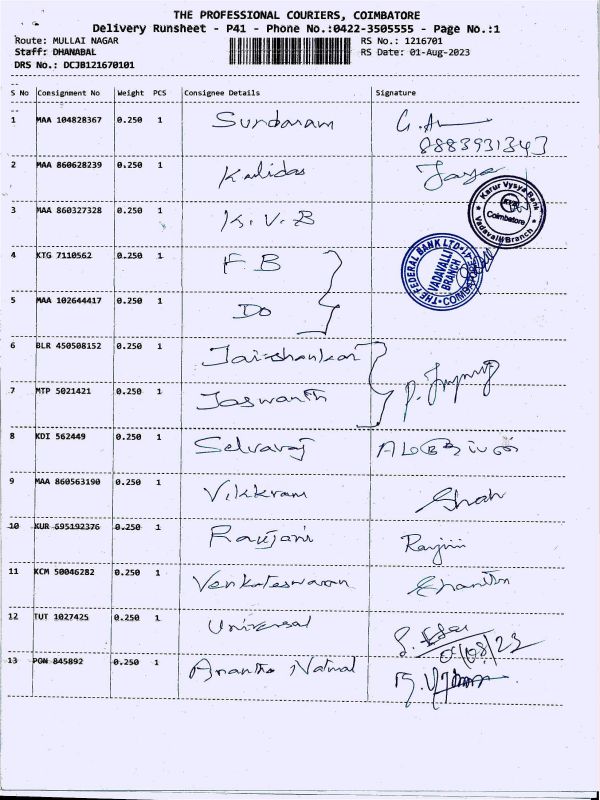 THE PROFESSIONAL COURIERS, COIMBATORE
Delivery Runsheet - P41 - Phone No.:0422-3505555 - Page No.:1
Route: MULLAI NAGAR RS No.: 1216701
Staff: DHANABAL RS Date: 01-Aug-2023
DRS No.: DCJB121670101
S No Consignment No Weight PCS Consignee Details Signature
1 MAA 104828367 0.250 1 Sundaram
8883931343
2 MAA 860628239 0.250 1 Kalidas Jaya
3 MAA 860327328 0.250 1 K.V.B
Karur Vysya Bank
Coimbatore
Vadavalli Branch
4 KTG 7110562 0.250 1 F B
THE FEDERAL BANK LTD.
VADAVALLI
BRANCH
COIMBATORE-41
5 MAA 102644417 0.250 1 Do
6 BLR 450508152 0.250 1 Jaishankar
7 MTP 5021421 0.250 1 Jaswanth
8 KDI 562449 0.250 1 Selvaraj
9 MAA 860563190 0.250 1 Vikkram Shah
10 KUR 695192376 0.250 1 Ranjani Ranjini
11 KCM 50046282 0.250 1 Venkateswaran Shanthi
12 TUT 1027425 0.250 1 Universal
01/08/23
13 PON 845892 0.250 1 Anantha Natural